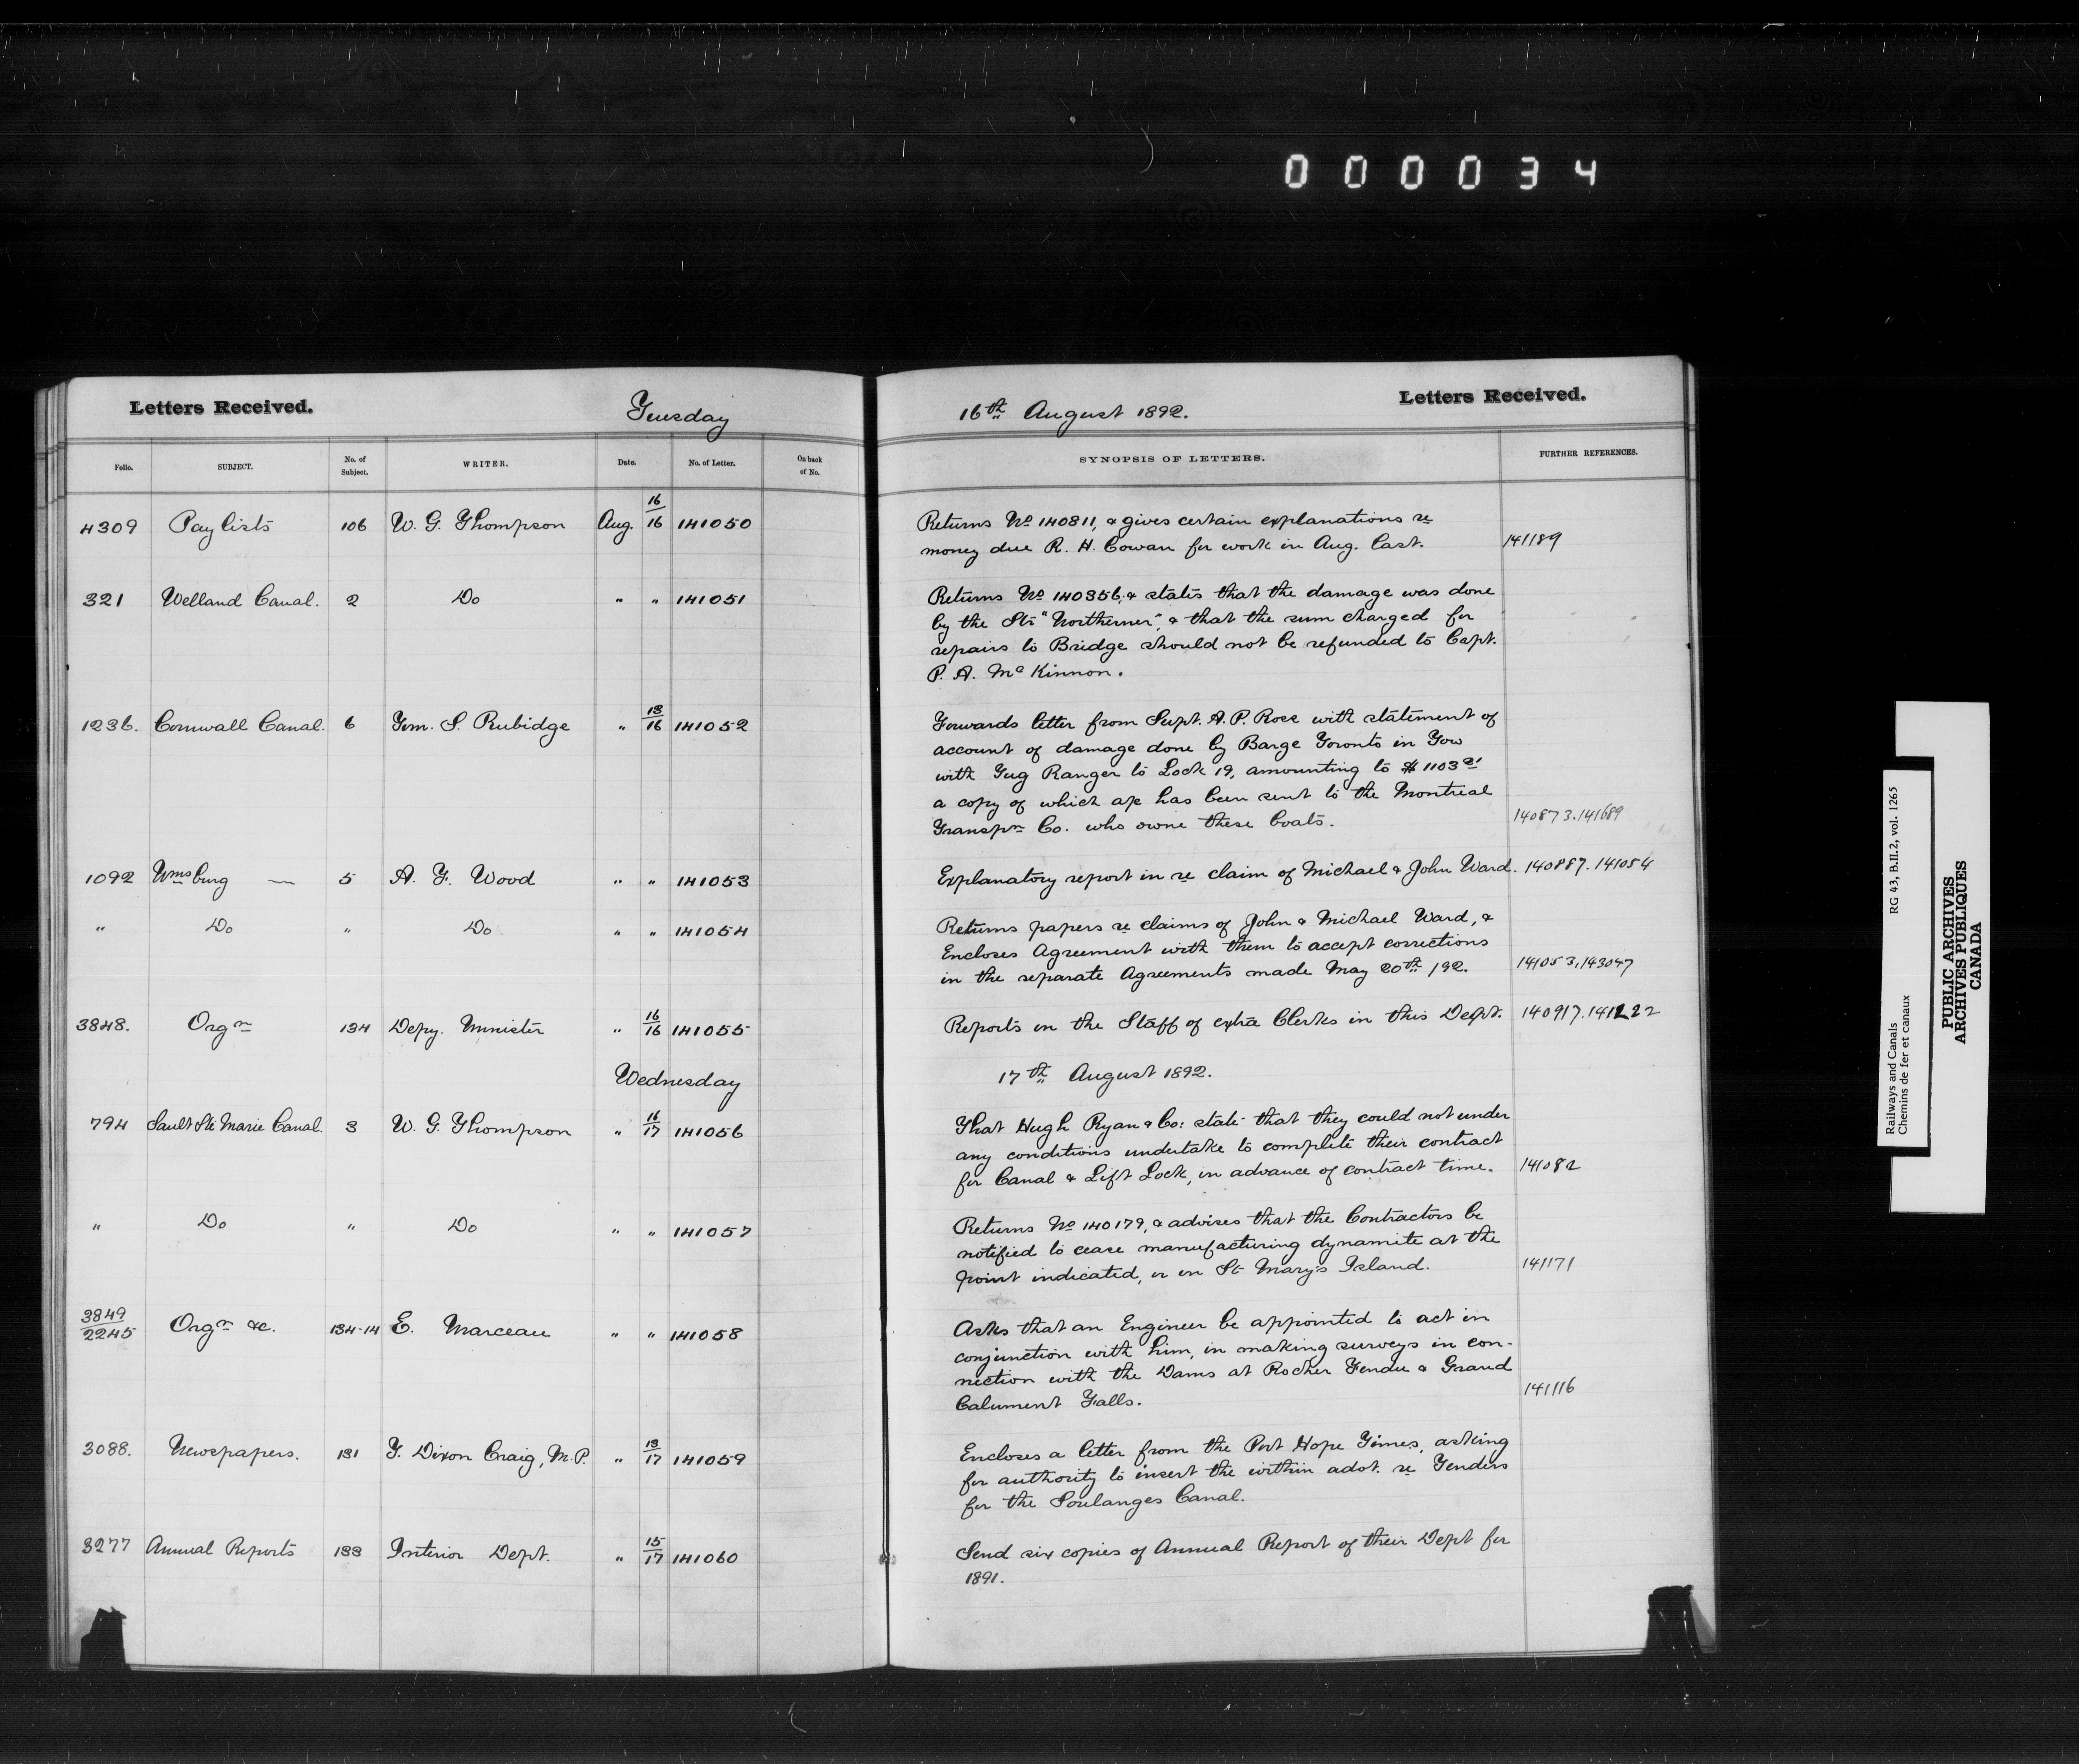 000034
Letters Received. Tuesday 16th August 1892. Letters Received.
Folio. SUBJECT. No. of Subject. WRITER. Date. No. of Letter. On back of No. SYNOPSIS OF LETTERS. FURTHER REFERENCES.
4309 Pay lists 106 W. G. Thompson Aug. 16/16 141050 Returns No 140811, & gives certain explanations re
money due R. H. Cowan for work in Aug. last. 141189
321 Welland Canal. 2 Do " " 141051 Returns No 140356, & states that the damage was done
by the Str "Northerner", & that the sum charged for
repairs to Bridge should not be refunded to Capt.
P. A. McKinnon.
1236. Cornwall Canal. 6 Tom. S. Rubidge " 13/16 141052 Forwards letter from Supt. A. P. Ross with statement of
account of damage done by Barge Toronto in Tow
with Tug Ranger to Lock 19, amounting to $1103
a copy of which a/c has been sent to the Montreal
Transpn Co. who owne these boats. 140873.141689
1092 Wmsburg — 5 A. F. Wood " " 141053 Explanatory report in re claim of Michael & John Ward. 140887.141054
" Do " Do " " 141054 Returns papers re claims of John & Michael Ward, &
Encloses Agreement with them to accept corrections
in the separate Agreements made May 20th /92. 141053,143047
3848. Orgn 134 Depy. Minister " 16/16 141055 Reports on the Staff of extra Clerks in this Dept. 140917.141222
Wednesday 17th August 1892.
794 Sault Ste Marie Canal. 3 W. G. Thompson " 16/17 141056 That Hugh Ryan & Co: state that they could not under
any conditions undertake to complete their contract
for Canal & Lift Lock, in advance of contract time. 141082
" Do " Do " " 141057 Returns No 140179, & advises that the Contractors be
notified to cease manufacturing dynamite at the
point indicated, or on St Mary's Island. 141171
3849/2245 Orgn &c. 134-14 E. Marceau " " 141058 Asks that an Engineer be appointed to act in
conjunction with him, in making surveys in con-
nection with the Dams at Rocher Fendu & Grand
Calument Falls. 141116
3088. Newspapers. 131 T. Dixon Craig, M.P. " 13/17 141059 Encloses a letter from the Port Hope Times, asking
for authority to insert the within advt. re Tenders
for the Soulanges Canal.
3277 Annual Reports 133 Interior Dept. " 15/17 141060 Send six copies of Annual Report of their Dept for
1891.
Railways and Canals RG 43, B.II.2, vol. 1265
Chemins de fer et canaux
PUBLIC ARCHIVES
ARCHIVES PUBLIQUES
CANADA